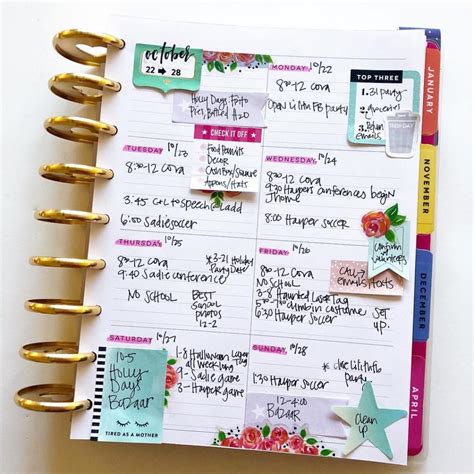 october
22 → 28
Holly Days Foto
MONDAY 10/22
8:30-12 Cora
TOP THREE
1.
CHECK IT OFF
Food Permits
Decor
Cash Box/Square
Aprons/Hats
TUESDAY 10/23
8:30-12 Cora
3:45 C+L to speech@Ladd
6:00 Sadie soccer
WEDNESDAY 10/24
8:30-12 Cora
9:30 Harpers conferences begin
home
8:00 Harper Soccer
Confirm
volunteers
THURSDAY 10/25
8:30-12 Cora
9:40 Sadie conference
NO SCHOOL
*3-21 Holiday
Party Date
BEST
School
photos
12-2
FRIDAY 10/26
8:30-12 Cora
NO SCHOOL
3-8 Haunted Laser Tag
5:30 Harper Soccer
set
up.
CALL
emails/texts
SATURDAY 10/27
10-5
Holly
Days
Bazaar
TIRED AS A MOTHER
1-8 Halloween Laser
all week long Tag
9 - Sadie game
3 - Harper game
SUNDAY 10/28
1:30 Harper soccer
party
12-4
BAZAAR
clean
up
JANUARY
NOVEMBER
DECEMBER
APRIL